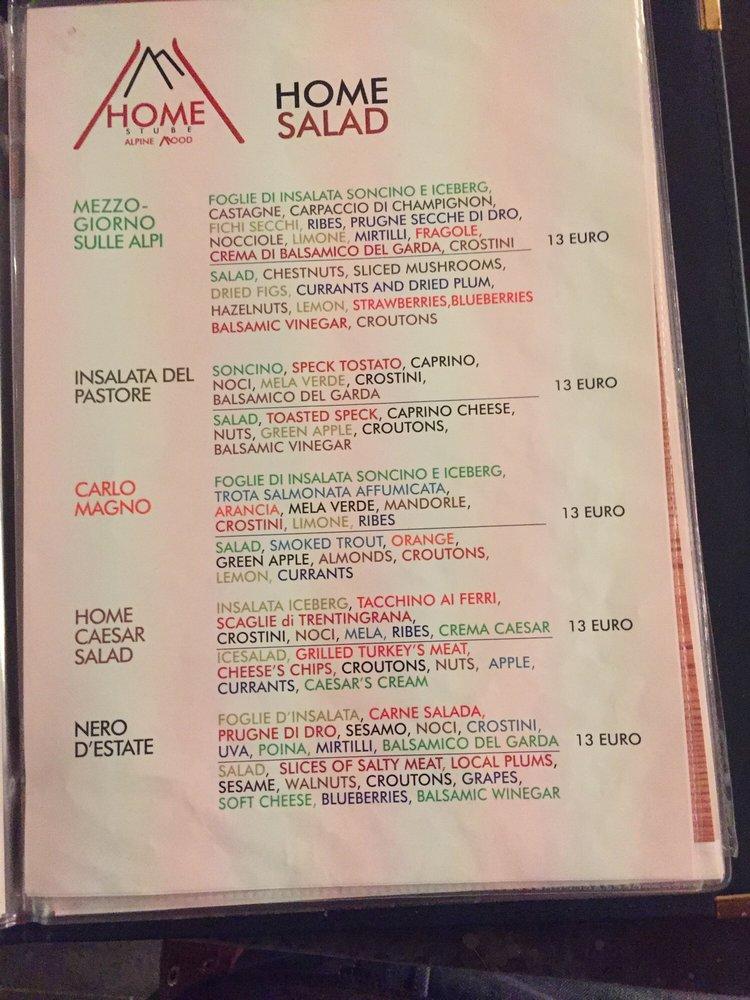 HOME
STUBE
ALPINE MOOD
HOME
SALAD
MEZZO-
GIORNO
SULLE ALPI
FOGLIE DI INSALATA SONCINO E ICEBERG,
CASTAGNE, CARPACCIO DI CHAMPIGNON,
FICHI SECCHI, RIBES, PRUGNE SECCHE DI DRO,
NOCCIOLE, LIMONE, MIRTILLI, FRAGOLE,
CREMA DI BALSAMICO DEL GARDA, CROSTINI
13 EURO
SALAD, CHESTNUTS, SLICED MUSHROOMS,
DRIED FIGS, CURRANTS AND DRIED PLUM,
HAZELNUTS, LEMON, STRAWBERRIES,BLUEBERRIES
BALSAMIC VINEGAR, CROUTONS
INSALATA DEL
PASTORE
SONCINO, SPECK TOSTATO, CAPRINO,
NOCI, MELA VERDE, CROSTINI,
BALSAMICO DEL GARDA
13 EURO
SALAD, TOASTED SPECK, CAPRINO CHEESE,
NUTS, GREEN APPLE, CROUTONS,
BALSAMIC VINEGAR
CARLO
MAGNO
FOGLIE DI INSALATA SONCINO E ICEBERG,
TROTA SALMONATA AFFUMICATA,
ARANCIA, MELA VERDE, MANDORLE,
CROSTINI, LIMONE, RIBES
13 EURO
SALAD, SMOKED TROUT, ORANGE,
GREEN APPLE, ALMONDS, CROUTONS,
LEMON, CURRANTS
HOME
CAESAR
SALAD
INSALATA ICEBERG, TACCHINO AI FERRI,
SCAGLIE di TRENTINGRANA,
CROSTINI, NOCI, MELA, RIBES, CREMA CAESAR
13 EURO
ICESALAD, GRILLED TURKEY'S MEAT,
CHEESE'S CHIPS, CROUTONS, NUTS, APPLE,
CURRANTS, CAESAR'S CREAM
NERO
D'ESTATE
FOGLIE D'INSALATA, CARNE SALADA,
PRUGNE DI DRO, SESAMO, NOCI, CROSTINI,
UVA, POINA, MIRTILLI, BALSAMICO DEL GARDA
13 EURO
SALAD, SLICES OF SALTY MEAT, LOCAL PLUMS,
SESAME, WALNUTS, CROUTONS, GRAPES,
SOFT CHEESE, BLUEBERRIES, BALSAMIC WINEGAR